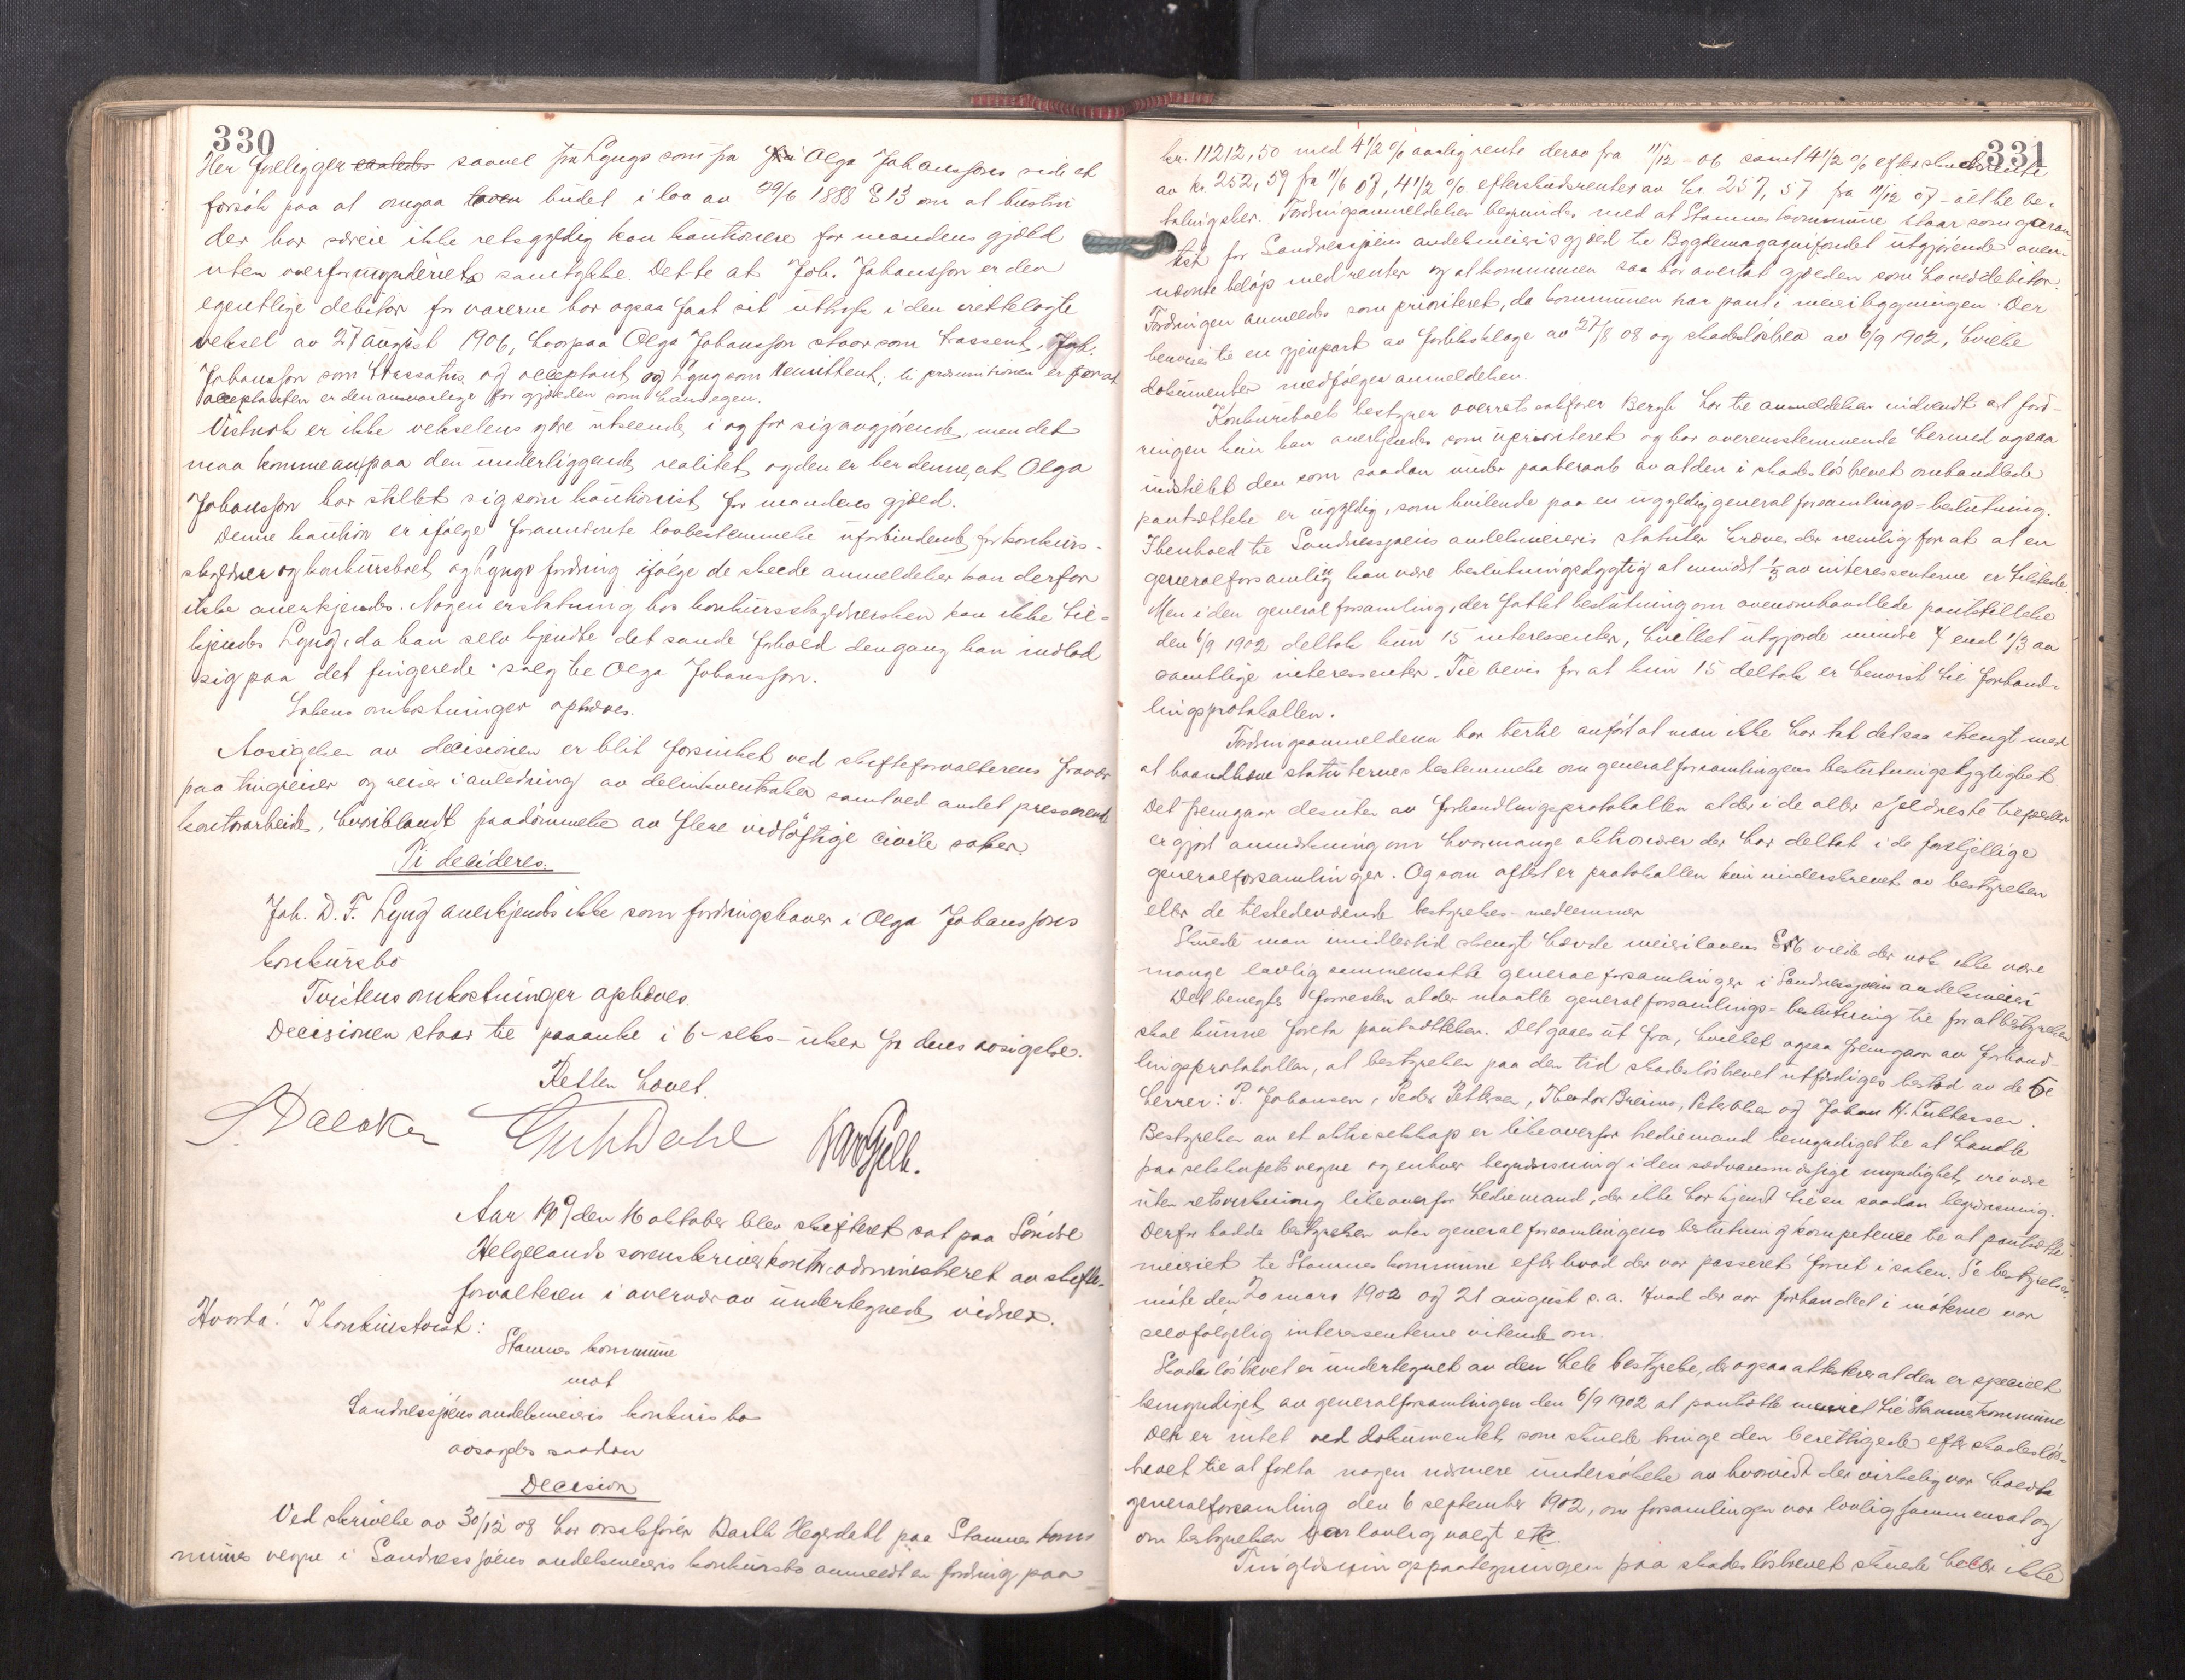 330
Her foreligger saaledes saavel fra Lyngs som fra fru Olga Johanssons side et
forsøk paa at omgaa loven budet i lov av 29/6 1888 § 13 om at hustru
der har særeie ikke retsgyldig kan kautionere for mandens gjæld
uten overformynderiets samtykke. Dette at Joh. Johansson er den
egentlige debitor for varerne har ogsaa faat sit uttryk i den irettelagte
veksel av 27 august 1906, hvorpaa Olga Johansson staar som trassent, Joh.
Johansson som trassatus og acceptant og Lyng som remittent; ti presumtionen er for at
acceptanten er den ansvarlige for gjælden som hans egen.
Vistnok er ikke vekselens ydre utseende i og for sig avgjørende, men det
maa komme an paa den underliggende realitet og den er her denne, at Olga
Johansson har stillet sig som kautionist for mandens gjæld.
Denne kaution er ifølge forannævnte lovbestemmelse uforbindende for konkurs-
skyldner og konkursboet og Lyngs fordring ifølge de skeede anmeldelser kan derfor
ikke anerkjendes. Nogen erstatning hos konkursskyldnersken kan ikke til-
kjendes Lyng, da han selv kjendte det sande forhold dengang han indlod
sig paa det fingerede salg til Olga Johansson.
Sakens omkostninger ophæves.
Avsigelsen av decisionen er blit forsinket ved skifteforvalterens fravær
paa tingreiser og reiser i anledning av delinkventsaker samt ved andet presserende
kontorarbeide, hvoriblandt paadømmelse av flere vidløftige civile saker.
Ti decideres.
Joh. D. F. Lyng anerkjendes ikke som fordringshaver i Olga Johanssons
konkursbo
Tvistens omkostninger ophæves.
Decisionen staar til paaanke i 6-seks-uker fra dens avsigelse.
Retten hævet.
Aar 1909 den 16 oktober blev skifteret sat paa Søndre
Helgelands sorenskriverkontor administreret av skifte-
forvalteren i overvær av undertegnede vidner.
Hvorda! I konkurstvist:
Stamnes kommune
mot
Sandnessjøens andelsmeieris konkursbo
avsagdes saadan
Decision
Ved skrivelse av 30/12 08 har orsakfører Barth Hegerdahl paa Stamnes kom-
munes vegne i Sandnessjøens andelsmeieris konkursbo anmeldt en fordring paa
331
kr. 11212,50 med 4 1/2 % aarlig rente derav fra 11/12-06 samt 4 1/2 % efterskudsrente
av kr. 252,59 fra 11/6 07, 4 1/2 % efterskudsrenter av kr. 257,57 fra 11/12 07 - alt til be-
taling sker. Fordringsanmeldelsen begrundes med at Stamnes kommune staar som garan-
tist for Sandnessjøens andelsmeieris gjæld til Bygdemagasinfondet utgjørende oven-
nævnte beløp med renter og at kommunen saa har overtat gjælden som hoveddebitor.
Fordringen anmeldes som prioriteret, da kommunen har pant i meieribygningen. Der
henvises til en gjenpart av forliksklage av 27/8 08 og skadesløsbrev av 6/9 1902, hvilke
dokumenter medfølger anmeldelsen.
Konkursboets bestyrer overretssakfører Bergh har til anmeldelsen indvendt at ford-
ringen kun kan anerkjendes som uprioriteret og har overensstemmende hermed ogsaa
indstillet den som saadan under paaberaab av at den i skadesløsbrevet omhandlede
pantsættelse er ugyldig, som hvilende paa en ugyldig generalforsamlings-beslutning.
I henhold til Sandnessjøens andelsmeieris statuter kræves der nemlig for at en
generalforsamling kan være beslutningsdygtig at mindst 1/3 av interessenterne er tilstede.
Men i den generalforsamling, der fattet beslutning om ovenomhandlede pantstillelse
den 6/9 1902 deltok kun 15 interessenter, hvilket utgjorde mindre end 1/3 av
samtlige interessenter. Til bevis for at kun 15 deltok er henvist til forhand-
lingsprotokollen.
Fordringsanmelderen har hertil anført at man ikke har tat det saa strengt med
at haandhæve statuternes bestemmelse om generalforsamlingens beslutningsdygtighet.
Det fremgaar desuten av forhandlingsprotokollen at der i de aller sjeldneste tilfælder
er gjort anmerkning om hvormange aktionærer der har deltat i de forskjellige
generalforsamlinger. Og som oftest er protokollen kun underskrevet av bestyrelsen
eller de tilstedeværende bestyrelses-medlemmer
Skulde man imidlertid strengt hævde meierilovens § 16 vilde der nok ikke være
mange lovlig sammensatte generalforsamlinger i Sandnessjøens andelsmeieri
Det benegtes forresten at der maatte generalforsamlings-beslutning til for at bestyrelsen
skal kunne foreta pantsættelsen. Det gaaes ut fra, hvilket ogsaa fremgaar av forhand-
lingsprotokollen, at bestyrelsen paa den tid skadesløsbrevet utfærdiges bestod av de 5
herrer: P. Johansen, Peder Pettersen, Theodor Breimo, Peter Olsen og Johan H. Lukkassen.
Bestyrelsen av et aktieselskap er likeoverfor trediemand bemyndiget til at handle
paa selskapets vegne og enhver begrænsning i den sædvansmæssige myndighet vil være
uten retsvirkning likeoverfor trediemand, der ikke har kjendt til en saadan begrænsning.
Derfor hadde bestyrelsen uten generalforsamlingens beslutning kompetence til at pantsætte
meieriet til Stamnes kommune efter hvad der var passeret forut i saken. Se bestyrelses-
møte den 20 mars 1902 og 21 august s.a. Hvad der var forhandlet i møterne var
selvfølgelig interessenterne vitende om.
Skadesløsbrevet er undertegnet av den hele bestyrelse, der ogsaa attesterer at den er specielt
bemyndiget av generalforsamlingen den 6/9 1902 at pantsætte meieriet til Stamnes kommune
Der er intet ved dokumentet som skulde tvinge den berettigede efter skadesløs-
brevet til at foreta nogen nærmere undersøkelse av hvorvidt der virkelig var holdt
generalforsamling den 6 september 1902, om forsamlingen var lovlig sammensat og
om bestyrelsen var lovlig valgt etc.
Tinglæsningspaategningen paa skadesløsbrevet skulde heller ikke